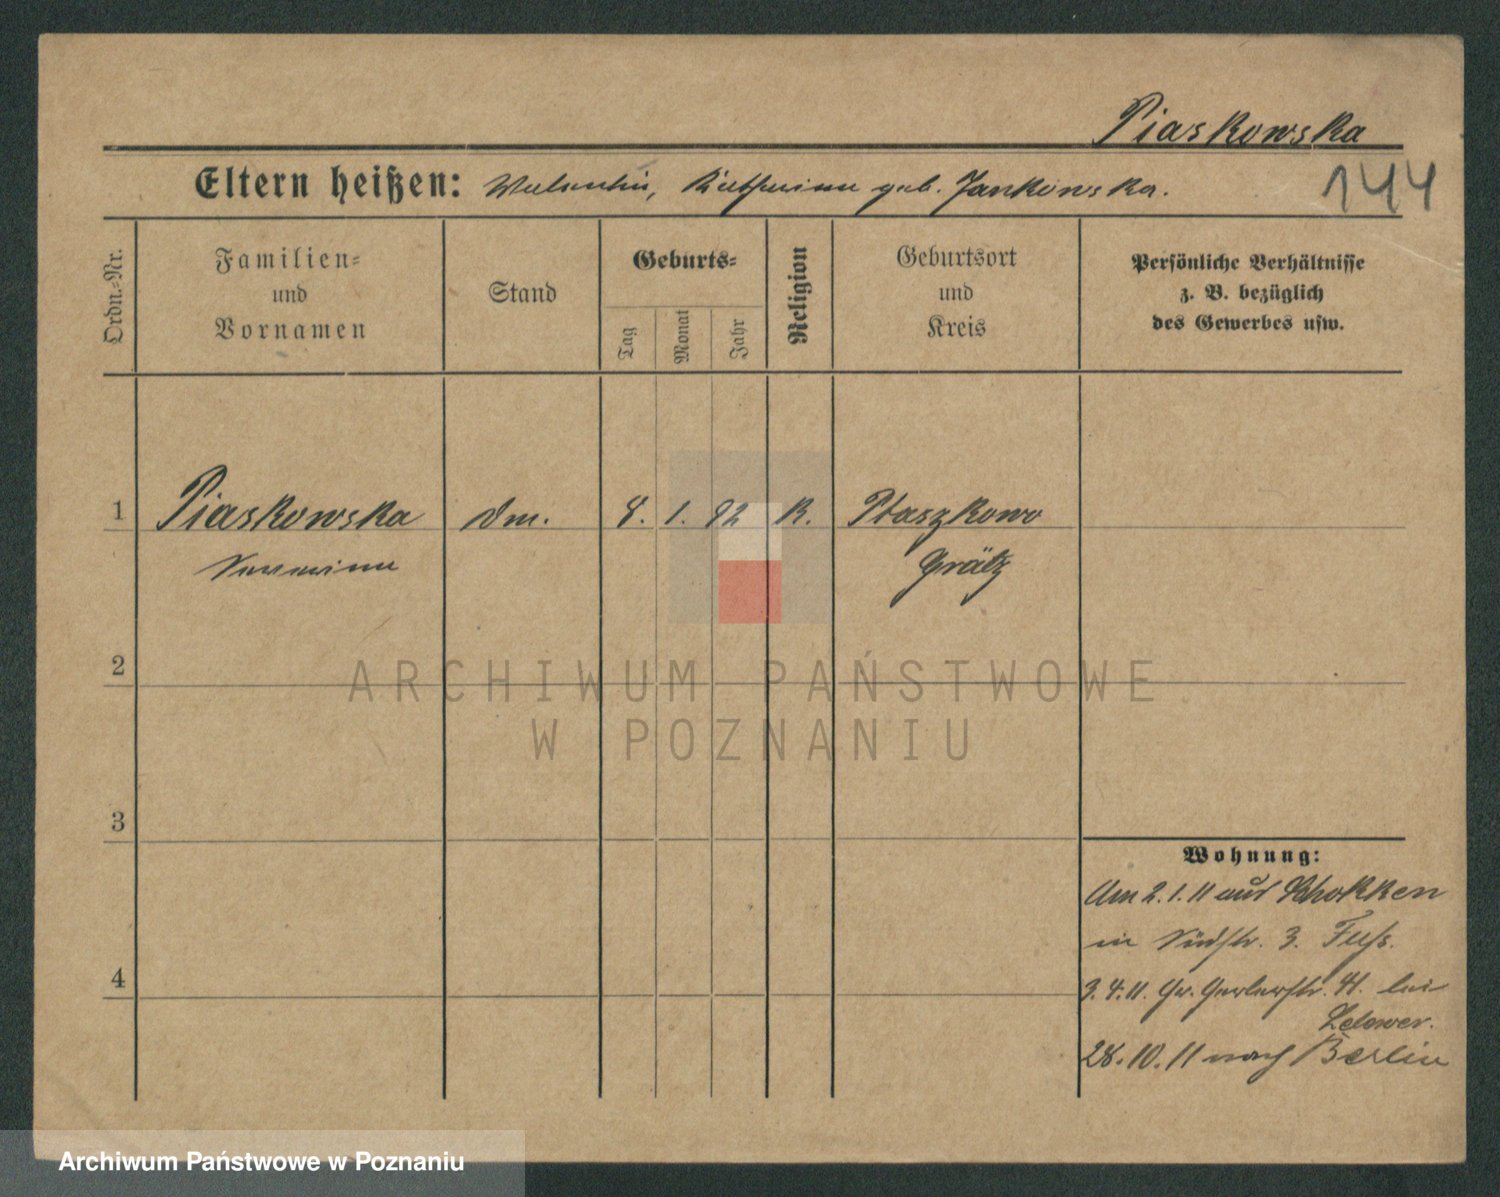 Piaskowska
144
Eltern heißen: Valentin, Katharina geb. Jankowska.
Ordn.-Nr.
Familien-
und
Vornamen
Stand
Geburts-
Tag
Monat
Jahr
Religion
Geburtsort
und
Kreis
Persönliche Verhältnisse
z. B. bezüglich
des Gewerbes usw.
1 Piaskowska 8. 1. 92 K. Ptaszkowo
Severina Grätz
2
3
4
Wohnung:
Am 2.1.11 aus Schokken
in Südstr. 3.
3.4.11. Gr. Gerberstr. 41. bei
28.10.11 nach Berlin
ARCHIWUM PAŃSTWOWE
W POZNANIU
Archiwum Państwowe w Poznaniu